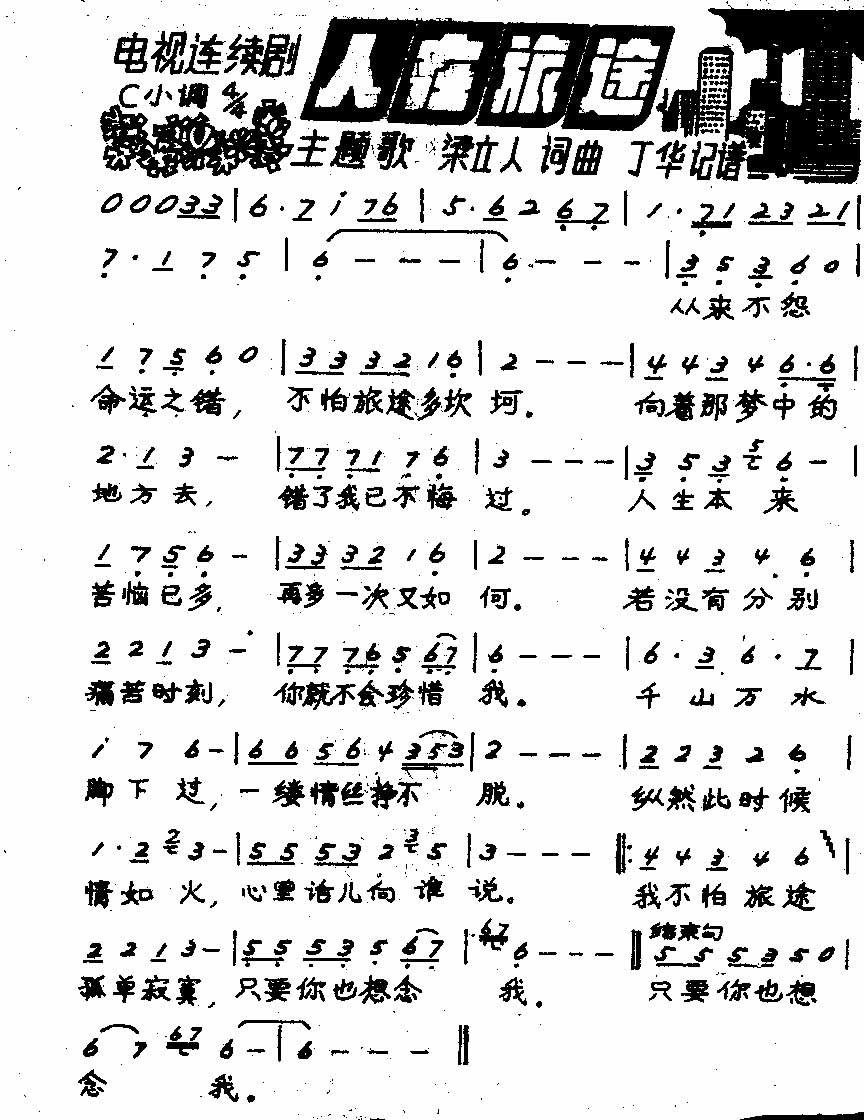 电视连续剧
人在旅途
C小调 4/4
主题歌 梁立人 词曲 丁华记谱
0 0 0 3 3 | 6 · 7 i 7 6 | 5 · 6 2 6 7 | 1 · 7 1 2 3 2 1 |
7 · 1 7 5 | 6 — — — | 6 — — — | 3 5 3 6 0 |
从来不怨
1 7 5 6 0 | 3 3 3 2 1 6 | 2 — — — | 4 4 3 4 6 · 6 |
命运之错, 不怕旅途多坎坷。 向着那梦中的
2 · 1 3 — | 7 7 7 1 7 6 | 3 — — — | 3 5 3 5 6 — |
地方去, 错了我已不悔过。 人生本来
1 7 5 6 — | 3 3 3 2 1 6 | 2 — — — | 4 4 3 4 6 |
苦恼已多, 再多一次又如何。 若没有分别
2 2 1 3 — | 7 7 7 6 5 6 7 | 6 — — — | 6 · 3 6 · 7 |
痛苦时刻, 你就不会珍惜我。 千山万水
i 7 6 — | 6 6 5 6 4 3 5 3 | 2 — — — | 2 2 3 2 6 |
脚下过, 一缕情丝挣不脱。 纵然此时候
1 · 2 2 3 — | 5 5 5 3 2 3 5 | 3 — — — ‖: 4 4 3 4 6 |
情如火, 心里话儿向谁说。 我不怕旅途
2 2 1 3 — | 5 5 5 3 5 6 7 | 6 7 6 — — — ‖ 结束句 5 5 5 3 5 0 |
孤单寂寞, 只要你也想念我。 只要你也想
6 7 6 7 6 — | 6 — — — ‖
念我。